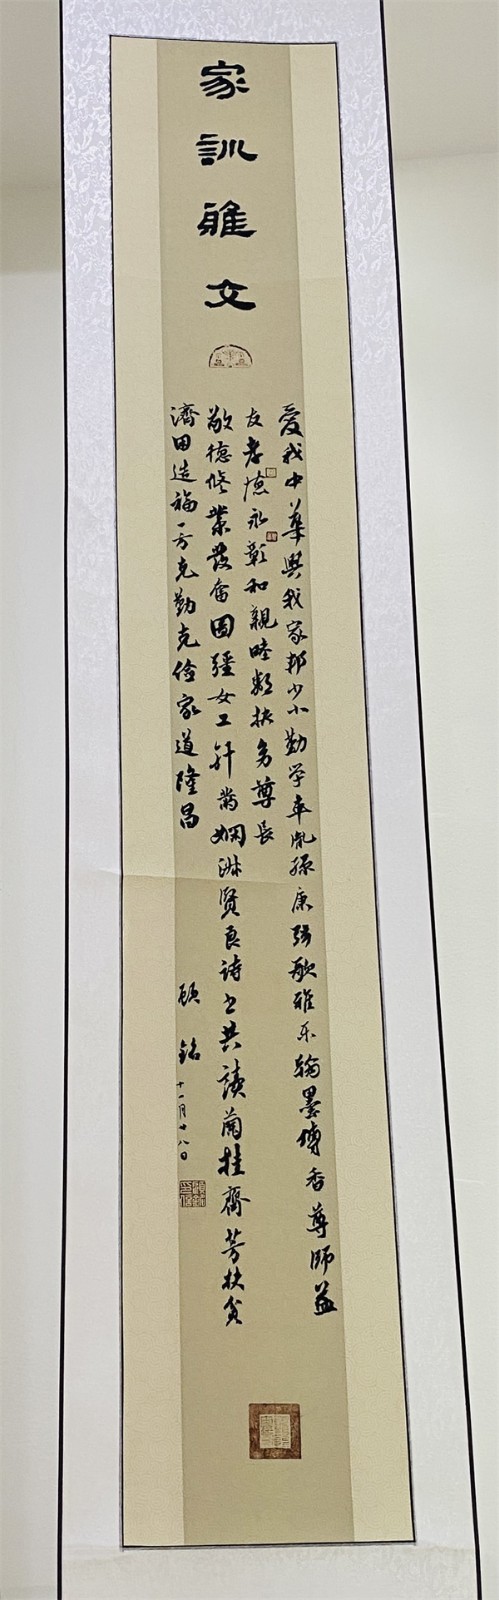 家訓雅文
愛我中華興我家邦少小勤学車胤孫康弦歌雅乐翰墨傳香尊師益
友孝德永彰和親睦鄰扶幼尊長
敬德修業發奮图疆女工針黹嫻淋賢良詩书共讀蘭桂齊芳扶貧
濟困造福一方克勤克儉家道隆昌
顾铭
十一月十八日